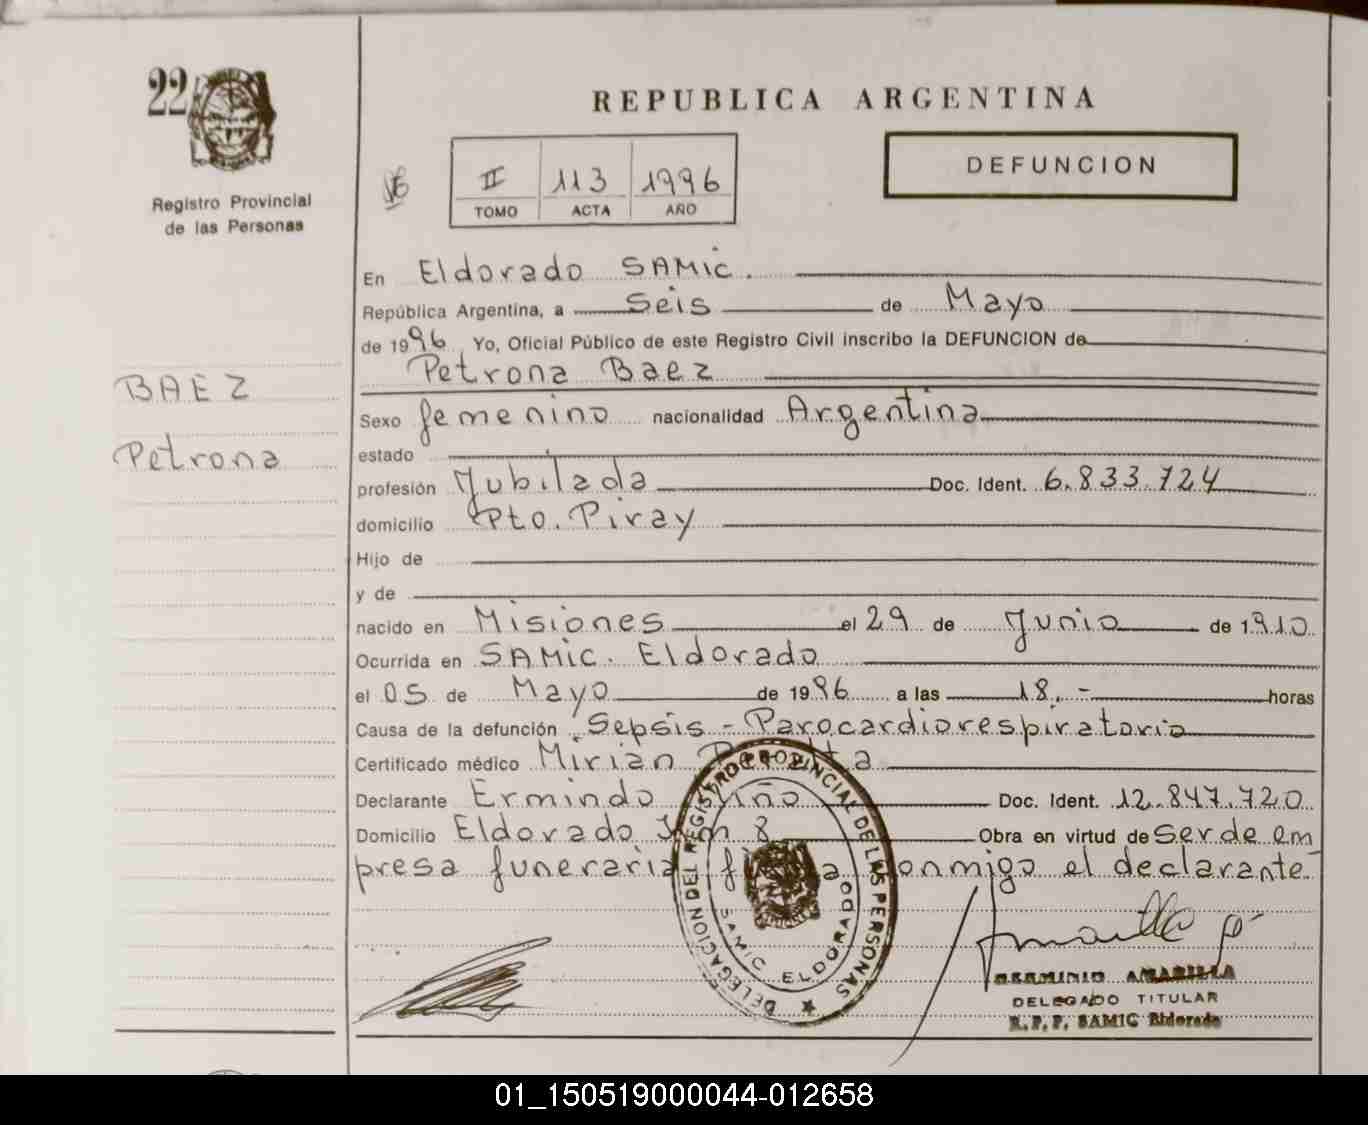 22
Registro Provincial
de las Personas
REPUBLICA ARGENTINA
DEFUNCION
II 113 1996
TOMO ACTA AÑO
En Eldorado SAMic.
República Argentina, a Seis de Mayo
de 1996 Yo, Oficial Público de este Registro Civil inscribo la DEFUNCION de
Petrona Baez
BAEZ
Petrona
Sexo femenino nacionalidad Argentina
estado
profesión Jubilada Doc. Ident. 6.833.724
domicilio Pto. Piray
Hijo de
y de
nacido en Misiones el 29 de Junio de 1910
Ocurrida en SAMic. Eldorado
el 05 de Mayo de 1996 a las 18.- horas
Causa de la defunción Sepsis - Parocardiorespiratorio
Certificado médico Mirian
Declarante Ermindo Doc. Ident. 12.847.720
Domicilio Eldorado Km 8 Obra en virtud de ser de em
presa funeraria firma conmigo el declarante.
DELEGACION DEL REGISTRO PROVINCIAL DE LAS PERSONAS
SAMIC ELDORADO
GERMINIO AMARILLA
DELEGADO TITULAR
R.P.P. SAMIC Eldorado
01_150519000044-012658